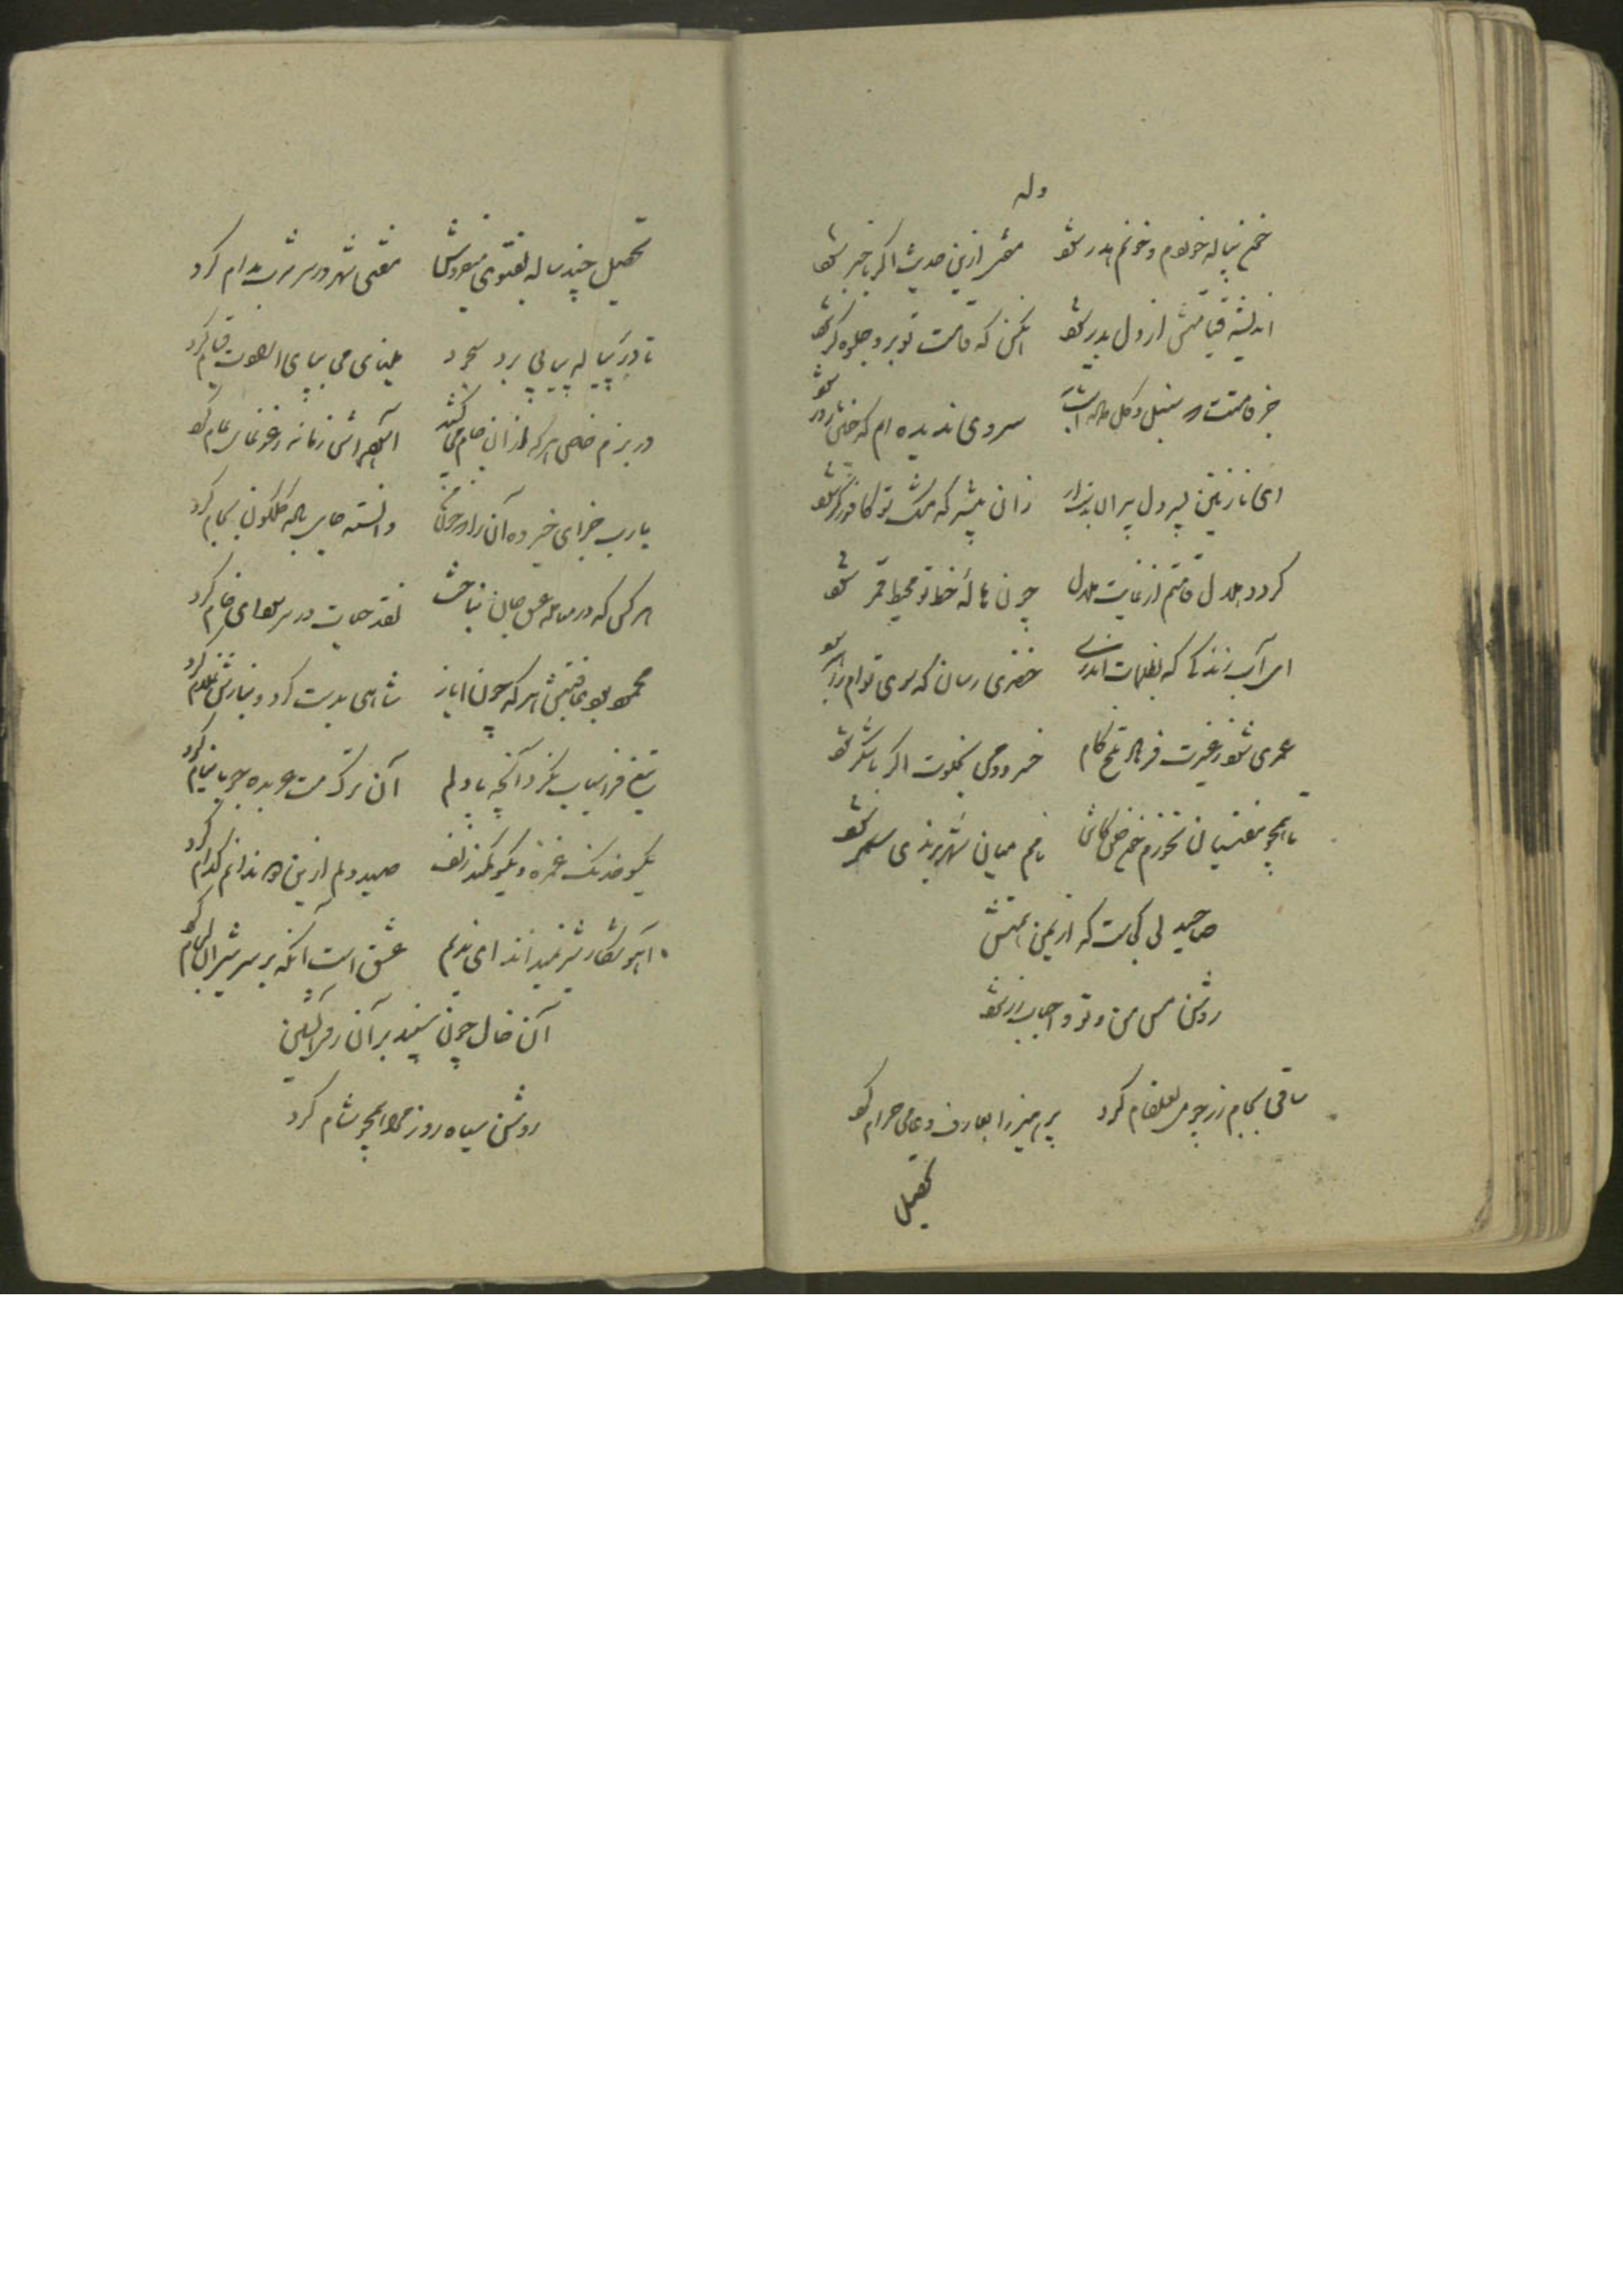 وله
خم نیاله خوردم و خونم هدر شود از این حدیث اگر باخبر شود
اندیشه قیامتش از دل بدر شود آنکس که قامت تو برو جلوه گر شود
جز قامتت سنبل و گل سروی ندیده ام که
ای نازنین پسر دل پیران زان پیشتر که مشک تو کافور تر شود
گردد هلال قامتم از غایت ملال چون هالهٔ خط تو محیط قمر شود
ای آب زندگی که بظلمات اندری خضری رسان که سوی توام راهبر شود
عمری شد ز غیرت فرهاد تلخ کام خسرو دمی بخلوت اگر با شکر شود
تا همچو مفتیان نخورم خون کاش نامم میان شهر برندی سمر شود
صاحبدلی کجاست که از یمن همتش
روشن مس من و تو و احباب زر شود
ساقی بجام زر چو می لعلفام کرد پرهیز را بعارف و عامی حرام کرد
تحصیل
تحصیل چند ساله بفتوی میفروش مفتی شهر در سر شرب مدام کرد
تا در پیاله پی به پی برد سجود مینای می بپای صوت قیام کرد
در بزم خاص هر که از آن جام می کشد آسایش زمانه ز غوغای عام کرد
یارب جزای خیر ده آن را دانسته جای باده گلگون بجام کرد
هر کس که در معامله عشق جان نباخت نقد حیات در سر سودای خام کرد
محمود بود عاقبتش هر که چون ایاز شاهی بدست کرد و نیازش غلام کرد
تیغ فراسیاب نکرد آنچه با دلم آن ترک مست عربده جو با نیام کرد
یکسو خدنگ غمزه و یکسو کمند زلف صید دلم ازین دو ندانم کدام کرد
آهو شکار شیر نمیداند ای ندیم عشق است آنکه بر سر شیران لگام کرد
آن خال چون سپند بر آن روی آتشین
روشن سیاه روز مرا همچو شام کرد